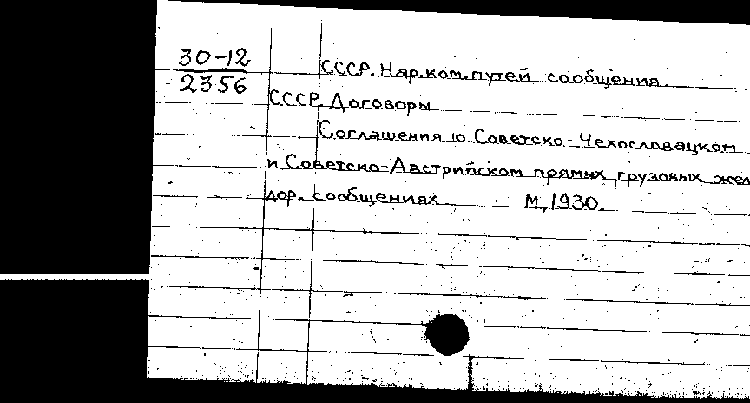 30-12
2356
СССР. Нар.ком.путей сообщения.
СССР. Договоры
Соглашения о Советско-Чехословацком
и Советско-Австрийском прямых грузовых жел
дор. сообщениях М., 1930.